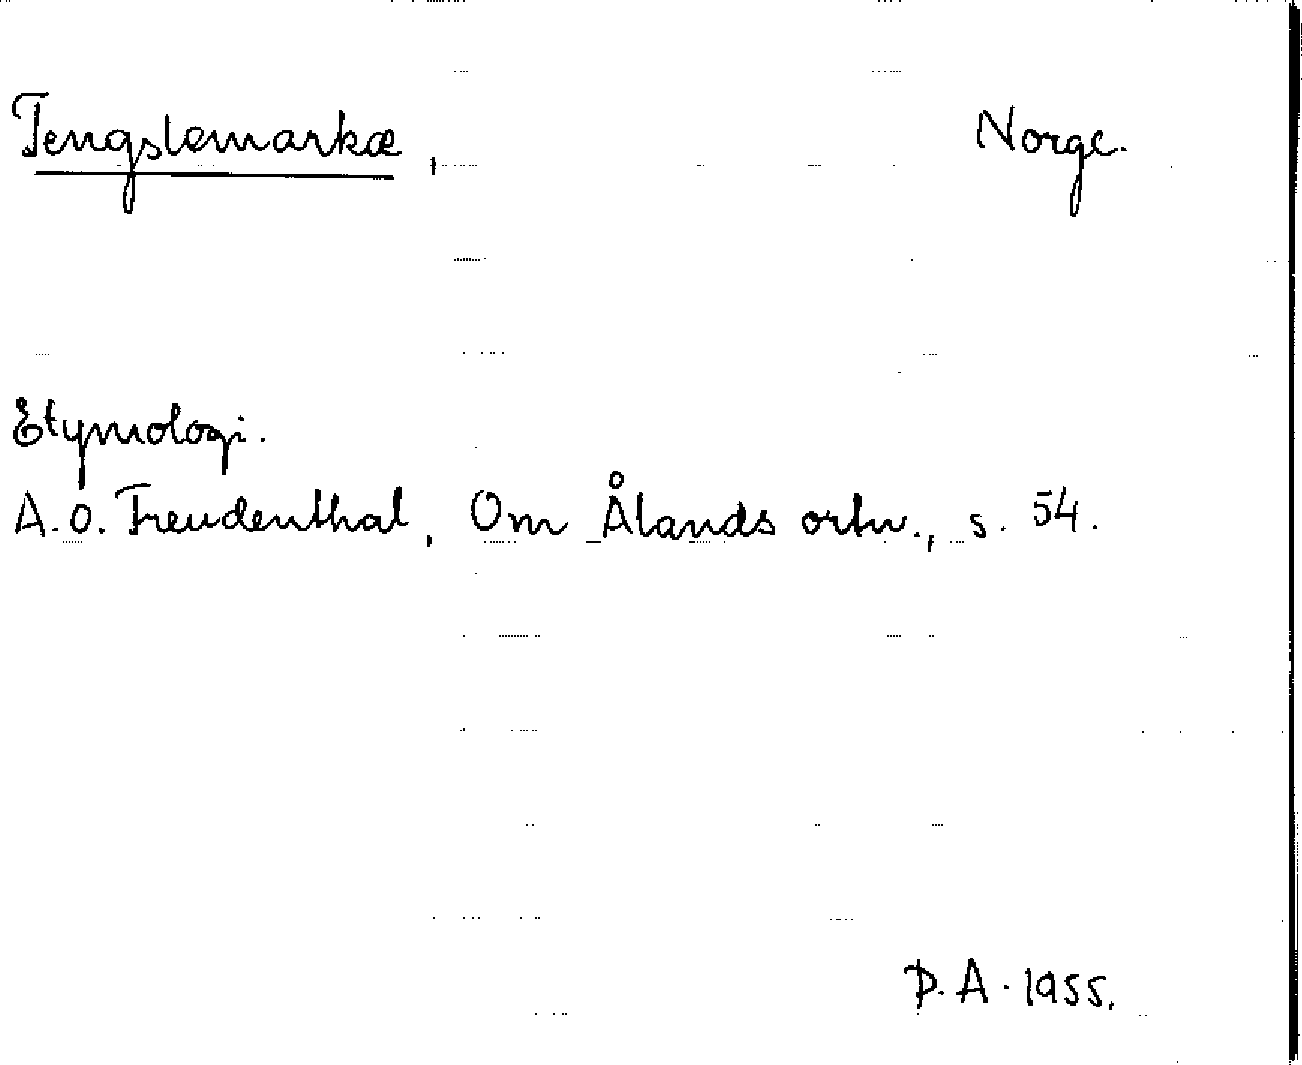 Tengslemarkæ, Norge.
Etymologi.
A.O. Freudenthal, Om Ålands ortn., s. 54.
D.A. 1955.